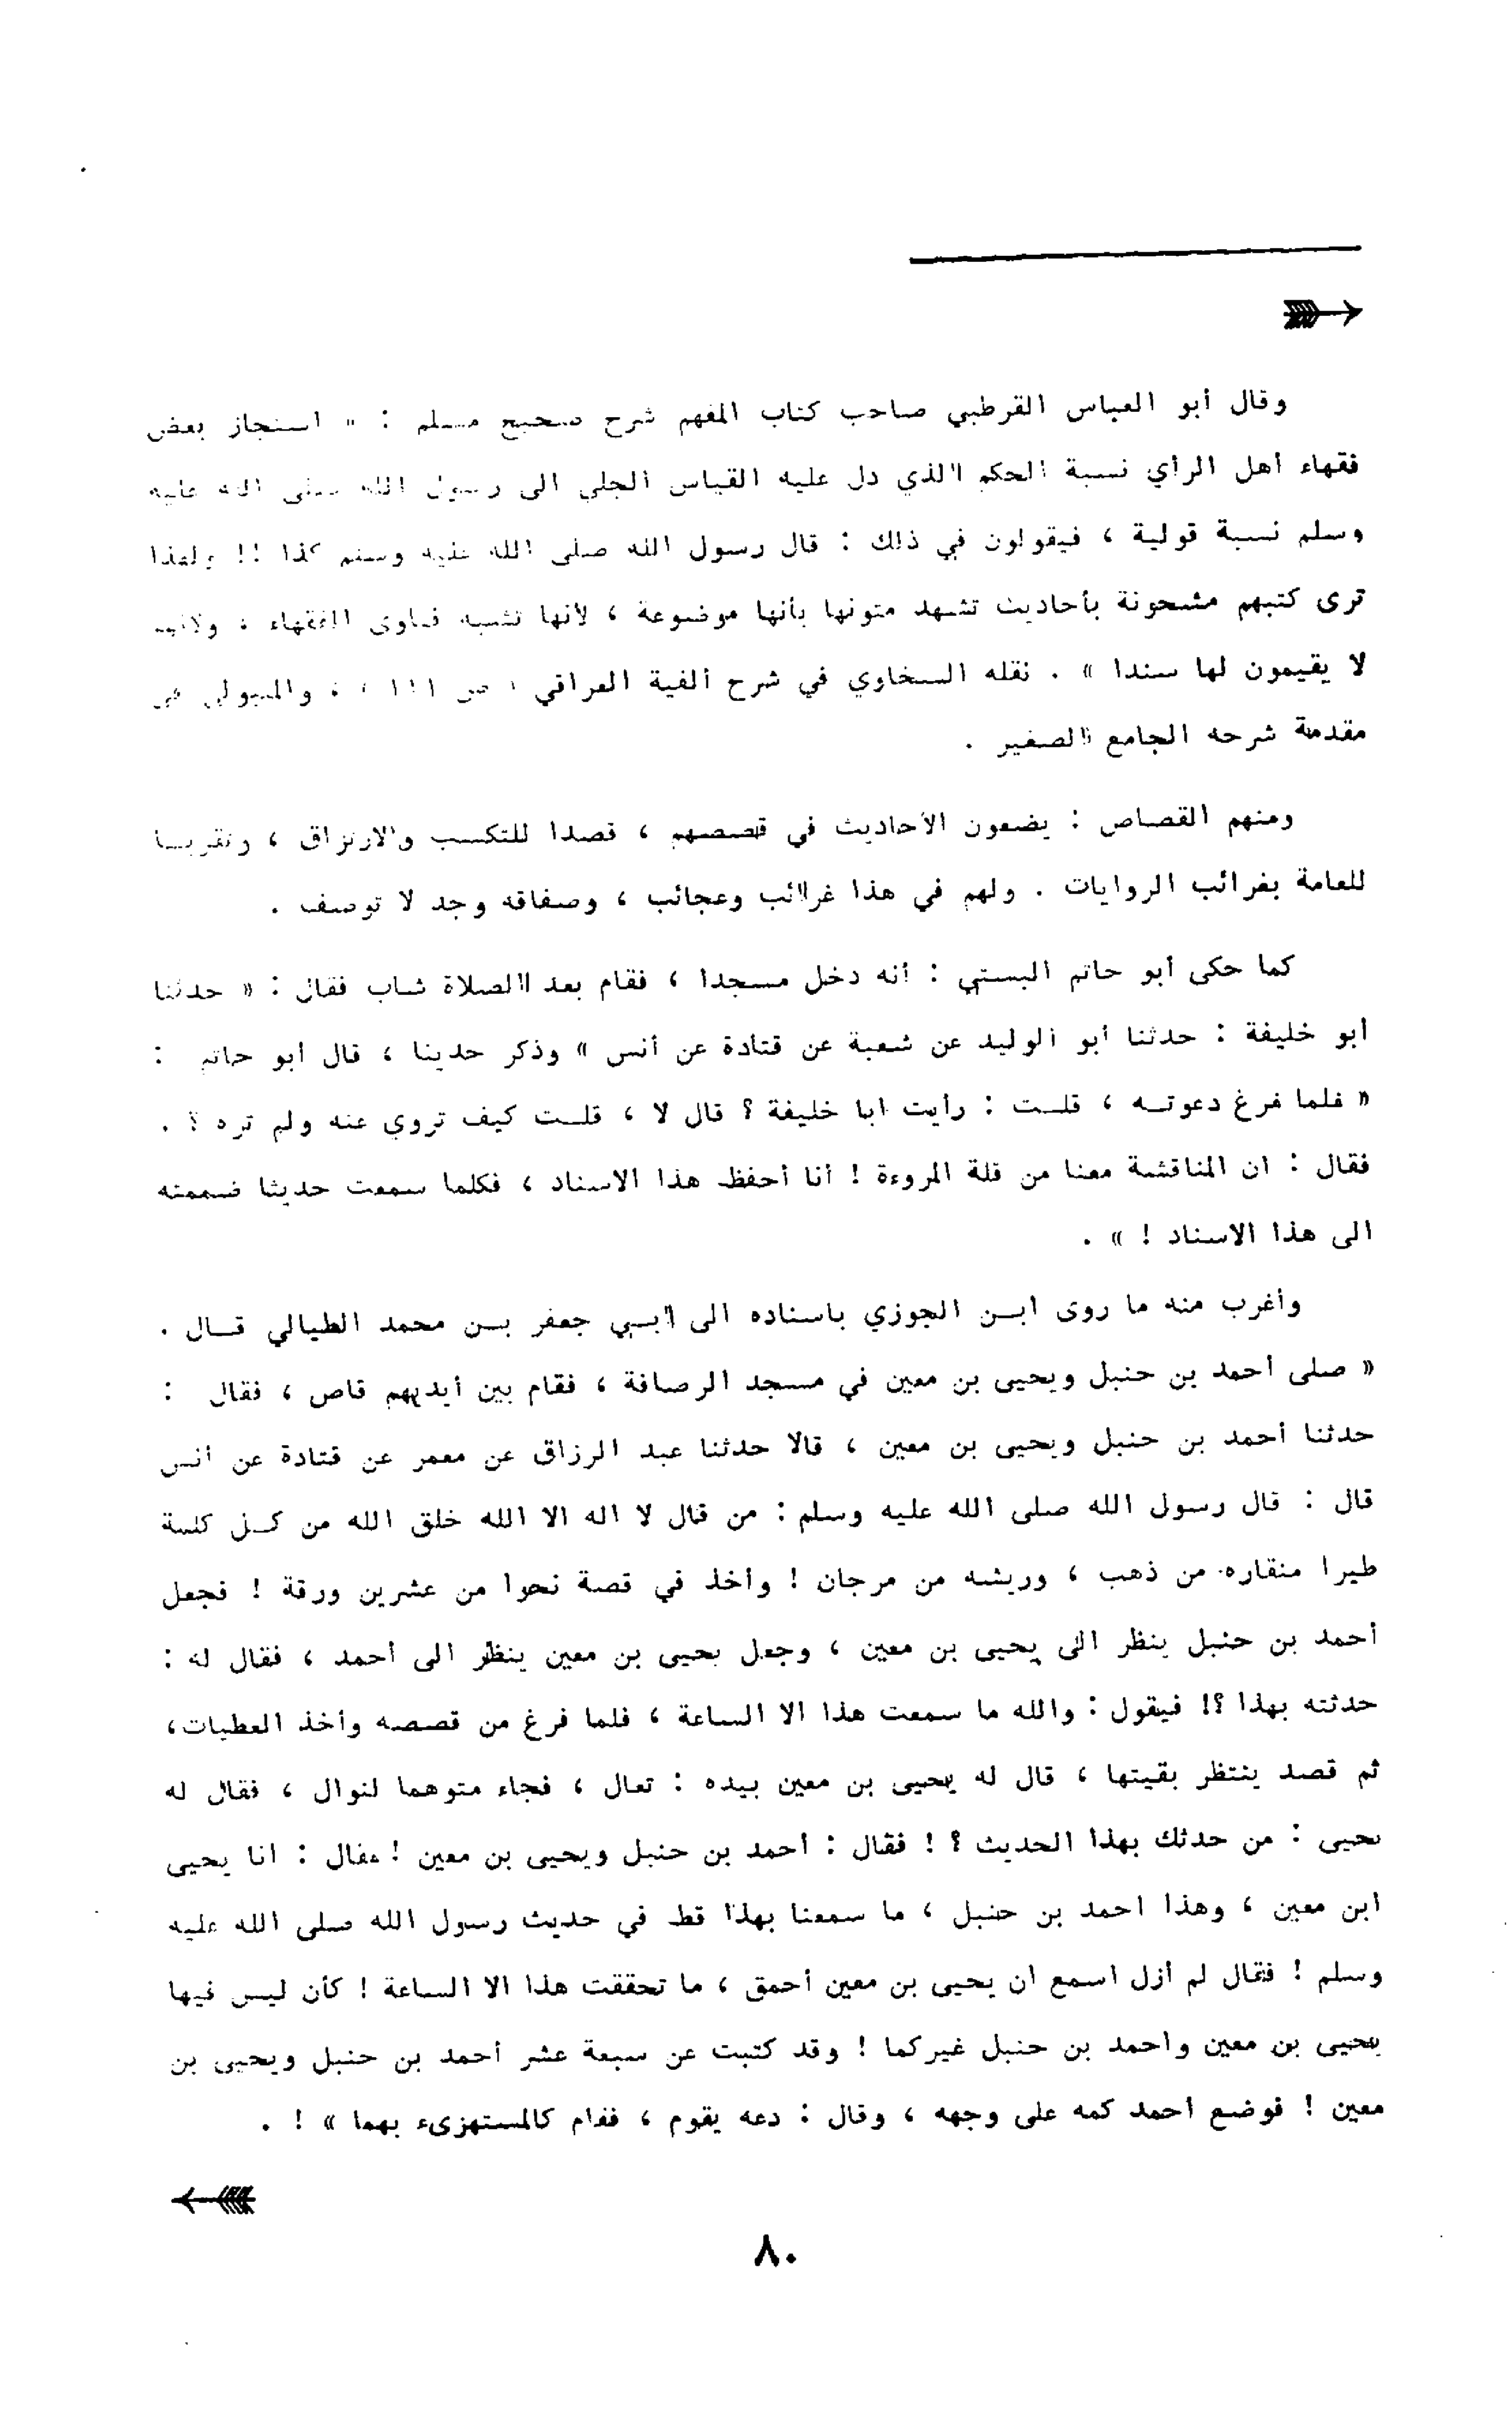 وقال أبو العباس القرطبي صاحب كتاب المفهم شرح صحيح مسلم : « استجاز بعض
فقهاء أهل الرأي نسبة الحكم الذي دل عليه القياس الجلي الى رسول الله صلى الله عليه
وسلم نسبة قولية ، فيقولون في ذلك : قال رسول الله صلى الله عليه وسلم كذا !! ولهذا
ترى كتبهم مشحونة بأحاديث تشهد متونها بأنها موضوعة ، لأنها تشبه فتاوى الفقهاء ، ولأنهم
لا يقيمون لها سندا » . نقله السخاوي في شرح ألفية العراقي ، ص ١١١ ، ، في
مقدمة شرحه الجامع الصغير .
ومنهم القصاص : يضعون الأحاديث في قصصهم ، قصدا للتكسب والارتزاق ، وتقربا
للعامة بغرائب الروايات . ولهم في هذا غرائب وعجائب ، وصفاقه وجد لا توصف .
كما حكى أبو حاتم البستي : أنه دخل مسجدا ، فقام بعد الصلاة شاب فقال : « حدثنا
أبو خليفة : حدثنا أبو الوليد عن شعبة عن قتادة عن أنس » وذكر حديثا ، قال أبو حاتم :
« فلما فرغ دعوته ، قلت : رأيت ابا خليفة ؟ قال لا ، قلت كيف تروي عنه ولم تره ؟ .
فقال : ان المناقشة معنا من قلة المروءة ! أنا أحفظ هذا الاسناد ، فكلما سمعت حديثا ضممته
الى هذا الاسناد ! » .
وأغرب منه ما روى ابن الجوزي باسناده الى أبي جعفر بن محمد الطيالي قال .
« صلى أحمد بن حنبل ويحيى بن معين في مسجد الرصافة ، فقام بين أيديهم قاص ، فقال :
حدثنا أحمد بن حنبل ويحيى بن معين ، قالا حدثنا عبد الرزاق عن معمر عن قتادة عن أنس
قال : قال رسول الله صلى الله عليه وسلم : من قال لا اله الا الله خلق الله من كل كلمة
طيرا منقاره من ذهب ، وريشه من مرجان ! وأخذ في قصة نحوا من عشرين ورقة ! فجعل
أحمد بن حنبل ينظر الى يحيى بن معين ، وجعل يحيى بن معين ينظر الى أحمد ، فقال له :
حدثته بهذا ؟! فيقول : والله ما سمعت هذا الا الساعة ، فلما فرغ من قصصه وأخذ العطيات،
ثم قصد ينتظر بقيتها ، قال له يحيى بن معين بيده : تعال ، فجاء متوهما لنوال ، فقال له
يحيى : من حدثك بهذا الحديث ؟ ! فقال : أحمد بن حنبل ويحيى بن معين ! فقال : انا يحيى
ابن معين ، وهذا احمد بن حنبل ، ما سمعنا بهذا قط في حديث رسول الله صلى الله عليه
وسلم ! فقال لم أزل اسمع ان يحيى بن معين أحمق ، ما تحققت هذا الا الساعة ! كأن ليس فيها
يحيى بن معين واحمد بن حنبل غيركما ! وقد كتبت عن سبعة عشر أحمد بن حنبل ويحيى بن
معين ! فوضع احمد كمه على وجهه ، وقال : دعه يقوم ، فقام كالمستهزىء بهما » ! .
٨٠